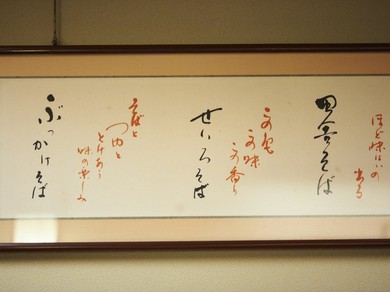 ほど味はいの
ある
田舎そば
この色
この味
この香り
せいろそば
そばと
つゆと
とけあう
味の楽しみ
ぶっかけそば